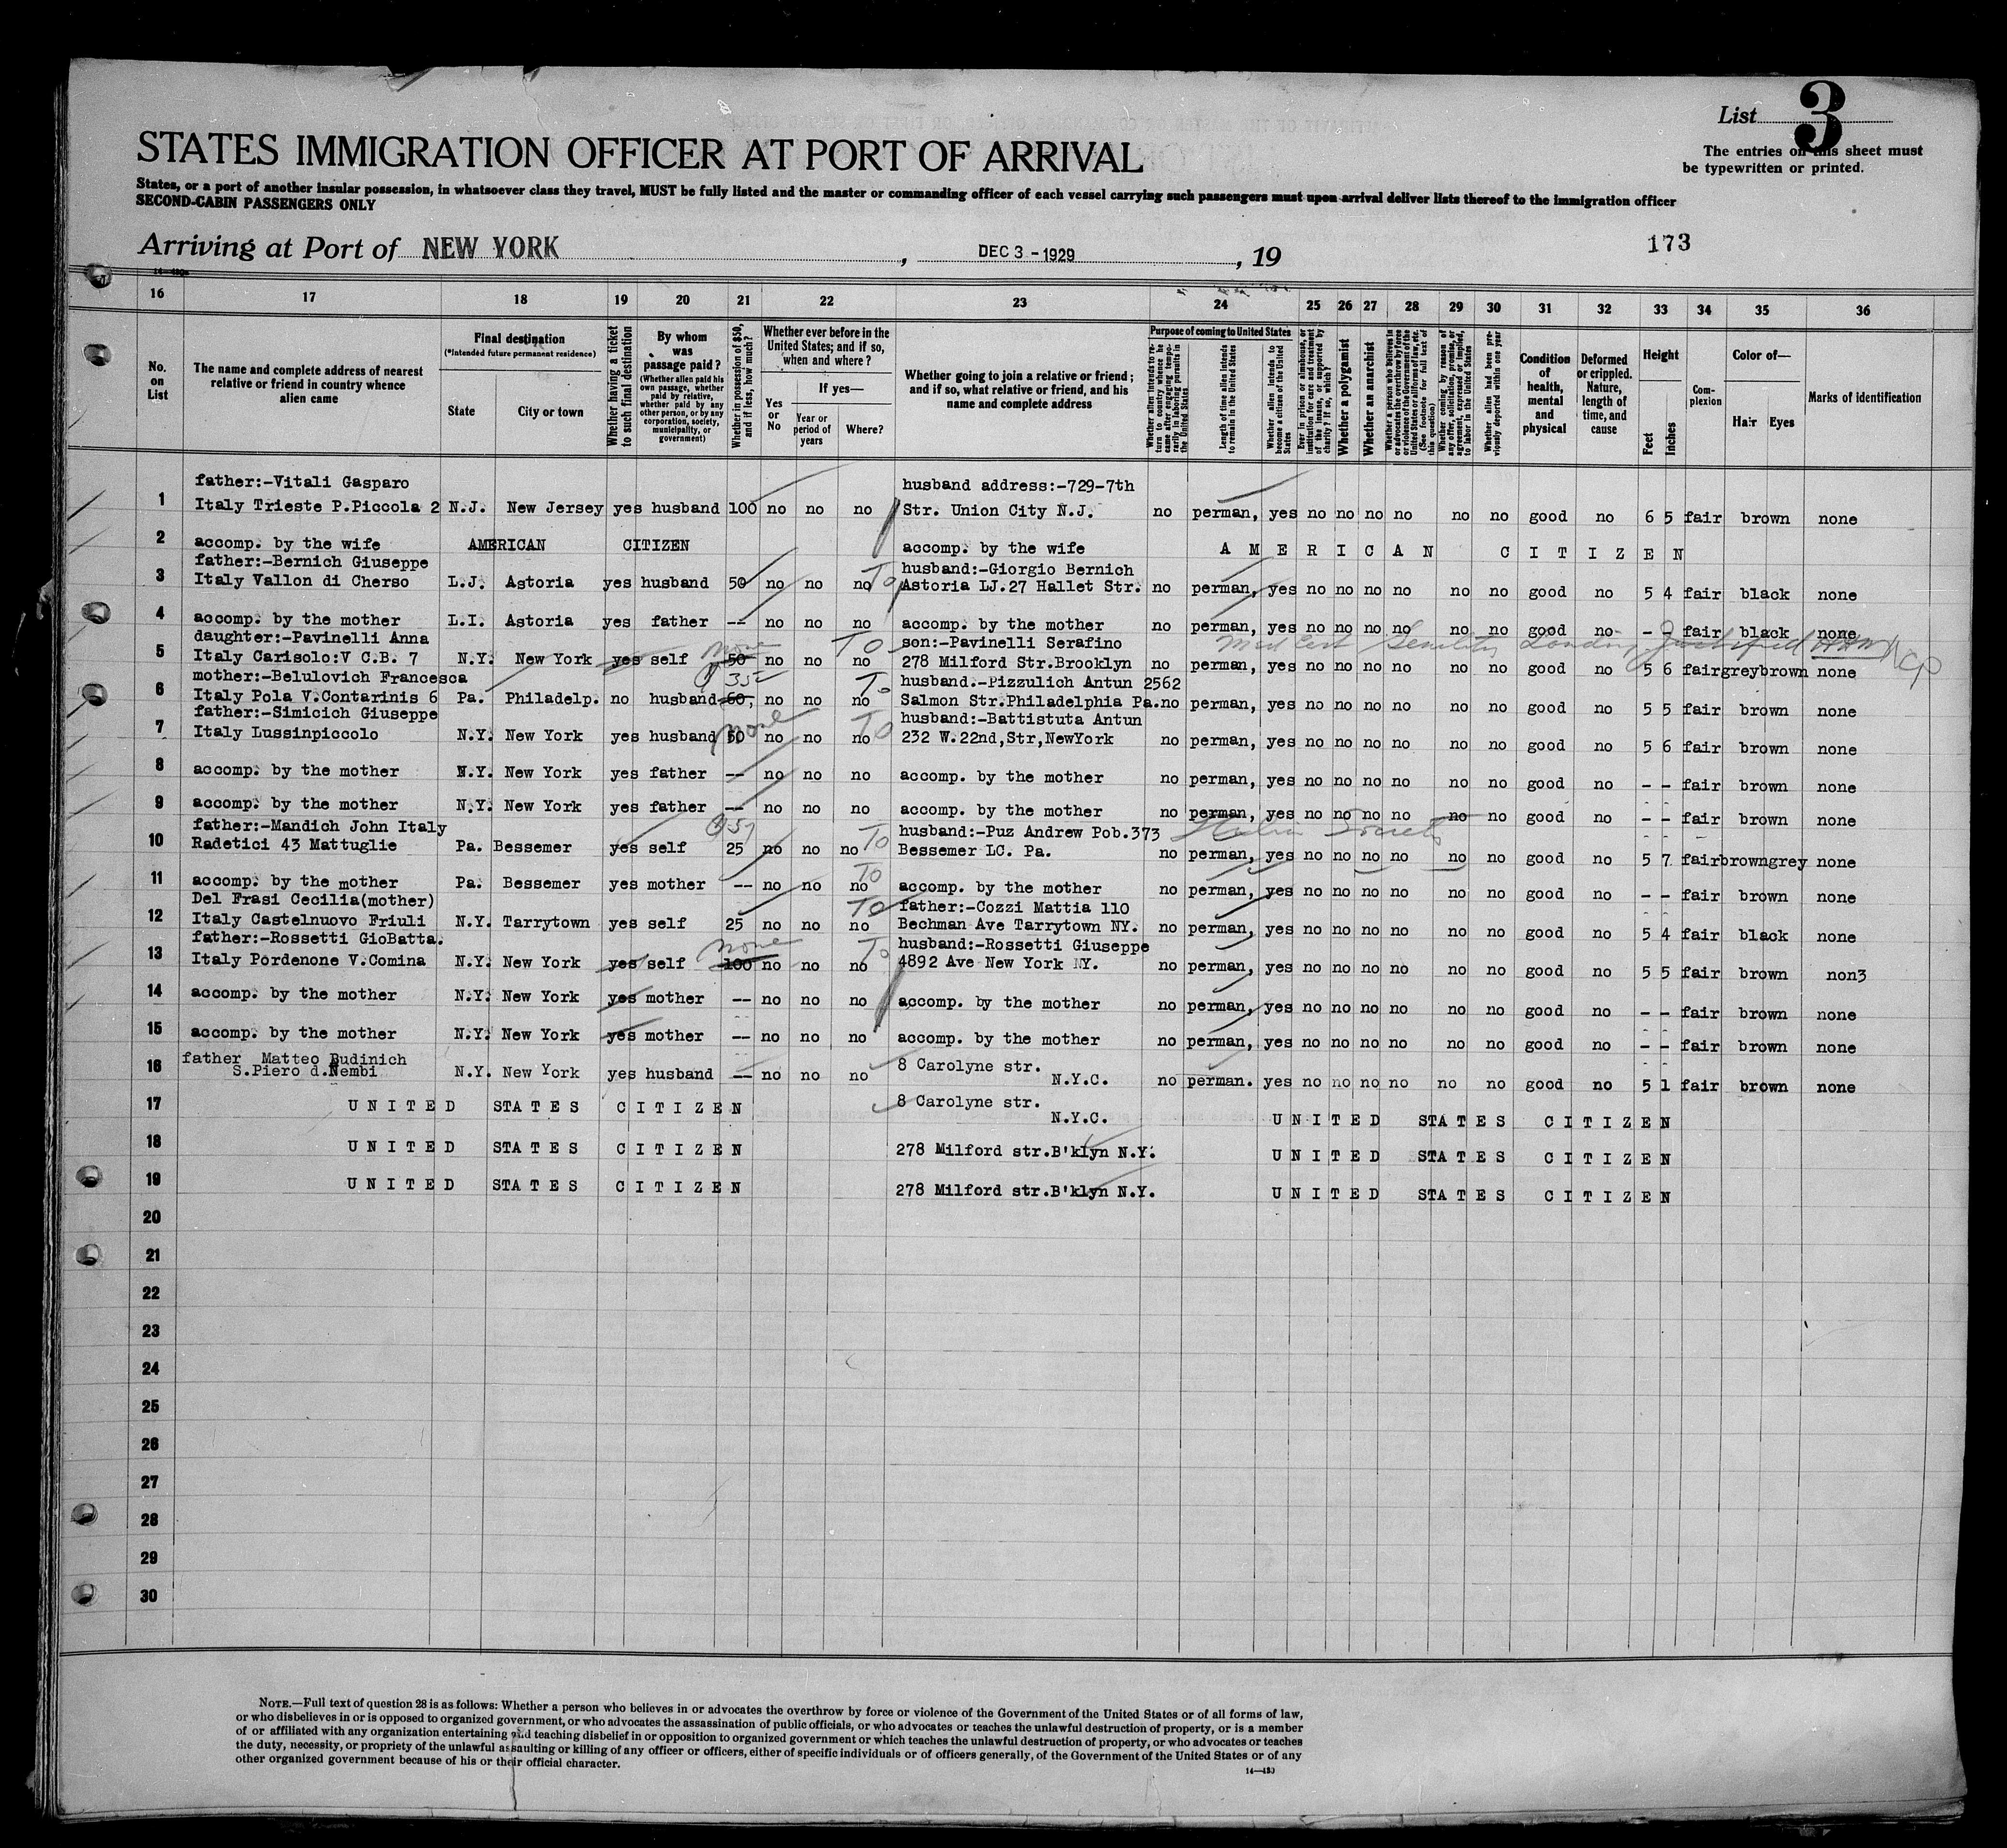 List 3
The entries on this sheet must
be typewritten or printed.
STATES IMMIGRATION OFFICER AT PORT OF ARRIVAL
States, or a port of another insular possession, in whatsoever class they travel, MUST be fully listed and the master or commanding officer of each vessel carrying such passengers must upon arrival deliver lists thereof to the immigration officer
SECOND-CABIN PASSENGERS ONLY
Arriving at Port of NEW YORK , DEC 3 - 1929 , 19
173
16 17 18 19 20 21 22 23 24 25 26 27 28 29 30 31 32 33 34 35 36
No. on List
The name and complete address of nearest relative or friend in country whence alien came
Final destination
(*Intended future permanent residence)
State
City or town
Whether having a ticket to such final destination
By whom was passage paid?
(Whether alien paid his own passage, whether paid by relative, whether paid by any other person, or by any corporation, society, municipality, or government)
Whether in possession of $50, and if less, how much?
Whether ever before in the United States; and if so, when and where?
Yes or No
If yes—
Year or period of years
Where?
Whether going to join a relative or friend; and if so, what relative or friend, and his name and complete address
Purpose of coming to United States
Whether alien intends to return to country whence he came after engaging temporarily in laboring pursuits in the United States
Length of time alien intends to remain in the United States
Whether alien intends to become a citizen of the United States
Ever in prison or almshouse, or institution for care and treatment of the insane, or supported by charity? If so, which?
Whether a polygamist
Whether an anarchist
Whether a person who believes in or advocates the overthrow by force or violence of the Government of the United States or all forms of law, etc. (See footnote for full text of this question)
Whether coming by reason of any offer, solicitation, promise, or agreement, expressed or implied, to labor in the United States
Whether alien had been previously deported within one year
Condition of health, mental and physical
Deformed or crippled. Nature, length of time, and cause
Height
Feet
Inches
Complexion
Color of—
Hair Eyes
Marks of identification
father:-Vitali Gasparo husband address:-729-7th
1 Italy Trieste P.Piccola 2 N.J. New Jersey yes husband 100 no no no Str. Union City N.J. no perman, yes no no no no no no good no 6 5 fair brown none
2 accomp. by the wife AMERICAN CITIZEN accomp. by the wife A M E R I C A N C I T I Z E N
father:-Bernich Giuseppe husband:-Giorgio Bernich
3 Italy Vallon di Cherso L.J. Astoria yes husband 50 no no no To Astoria LJ.27 Hallet Str. no perman, yes no no no no no no good no 5 4 fair black none
4 accomp. by the mother L.I. Astoria yes father -- no no no accomp. by the mother no perman, yes no no no no no no good no - - fair black none
daughter:-Pavinelli Anna none To son:-Pavinelli Serafino Med Cert Senility Landing Justified
5 Italy Carisolo:V C.B. 7 N.Y. New York yes self 50 no no no 278 Milford Str.Brooklyn no perman, yes no no no no no no good no 5 6 fairgreybrown none
mother:-Belulovich Francesca 35 To husband.-Pizzulich Antun 2562
6 Italy Pola V.Contarinis 6 Pa. Philadelp. no husband 60, no no no Salmon Str.Philadelphia Pa.no perman, yes no no no no no no good no 5 5 fair brown none
father:-Simicich Giuseppe none To husband:-Battistuta Antun
7 Italy Lussinpiccolo N.Y. New York yes husband 50 no no no 232 W.22nd,Str,NewYork no perman, yes no no no no no no good no 5 6 fair brown none
8 accomp. by the mother N.Y. New York yes father -- no no no accomp. by the mother no perman, yes no no no no no no good no - - fair brown none
9 accomp. by the mother N.Y. New York yes father -- no no no accomp. by the mother no perman, yes no no no no no no good no - - fair brown none
father:-Mandich John Italy 57 To husband:-Puz Andrew Pob.373 Italian Society
10 Radetici 43 Mattuglie Pa. Bessemer yes self 25 no no no Bessemer LC. Pa. no perman, yes no no no no no no good no 5 7 fairbrowngrey none
11 accomp. by the mother Pa. Bessemer yes mother -- no no no To accomp. by the mother no perman, yes no no no no no no good no - - fair brown none
Del Frasi Cecilia(mother) To father:-Cozzi Mattia 110
12 Italy Castelnuovo Friuli N.Y. Tarrytown yes self 25 no no no Bechman Ave Tarrytown NY. no perman, yes no no no no no no good no 5 4 fair black none
father:-Rossetti GioBatta. none To husband:-Rossetti Giuseppe
13 Italy Pordenone V.Comina N.Y. New York yes self 100 no no no 4892 Ave New York NY. no perman, yes no no no no no no good no 5 5 fair brown non3
14 accomp. by the mother N.Y. New York yes mother -- no no no accomp. by the mother no perman, yes no no no no no no good no - - fair brown none
15 accomp. by the mother N.Y. New York yes mother -- no no no accomp. by the mother no perman, yes no no no no no no good no - - fair brown none
father Matteo Budinich 8 Carolyne str.
16 S.Piero d.Nembi N.Y. New York yes husband -- no no no N.Y.C. no perman. yes no no no no no no good no 5 1 fair brown none
17 U N I T E D STA T E S C I T I Z E N 8 Carolyne str. N.Y.C. U N I T E D STA T E S C I T I Z E N
18 U N I T E D STA T E S C I T I Z E N 278 Milford str.B'klyn N.Y. U N I T E D STA T E S C I T I Z E N
19 U N I T E D STA T E S C I T I Z E N 278 Milford str.B'klyn N.Y. U N I T E D STA T E S C I T I Z E N
20
21
22
23
24
25
26
27
28
29
30
NOTE.—Full text of question 28 is as follows: Whether a person who believes in or advocates the overthrow by force or violence of the Government of the United States or of all forms of law,
or who disbelieves in or is opposed to organized government, or who advocates the assassination of public officials, or who advocates or teaches the unlawful destruction of property, or is a member
of or affiliated with any organization entertaining and teaching disbelief in or opposition to organized government or which teaches the unlawful destruction of property, or who advocates or teaches
the duty, necessity, or propriety of the unlawful assaulting or killing of any officer or officers, either of specific individuals or of officers generally, of the Government of the United States or of any
other organized government because of his or their official character.
14—480